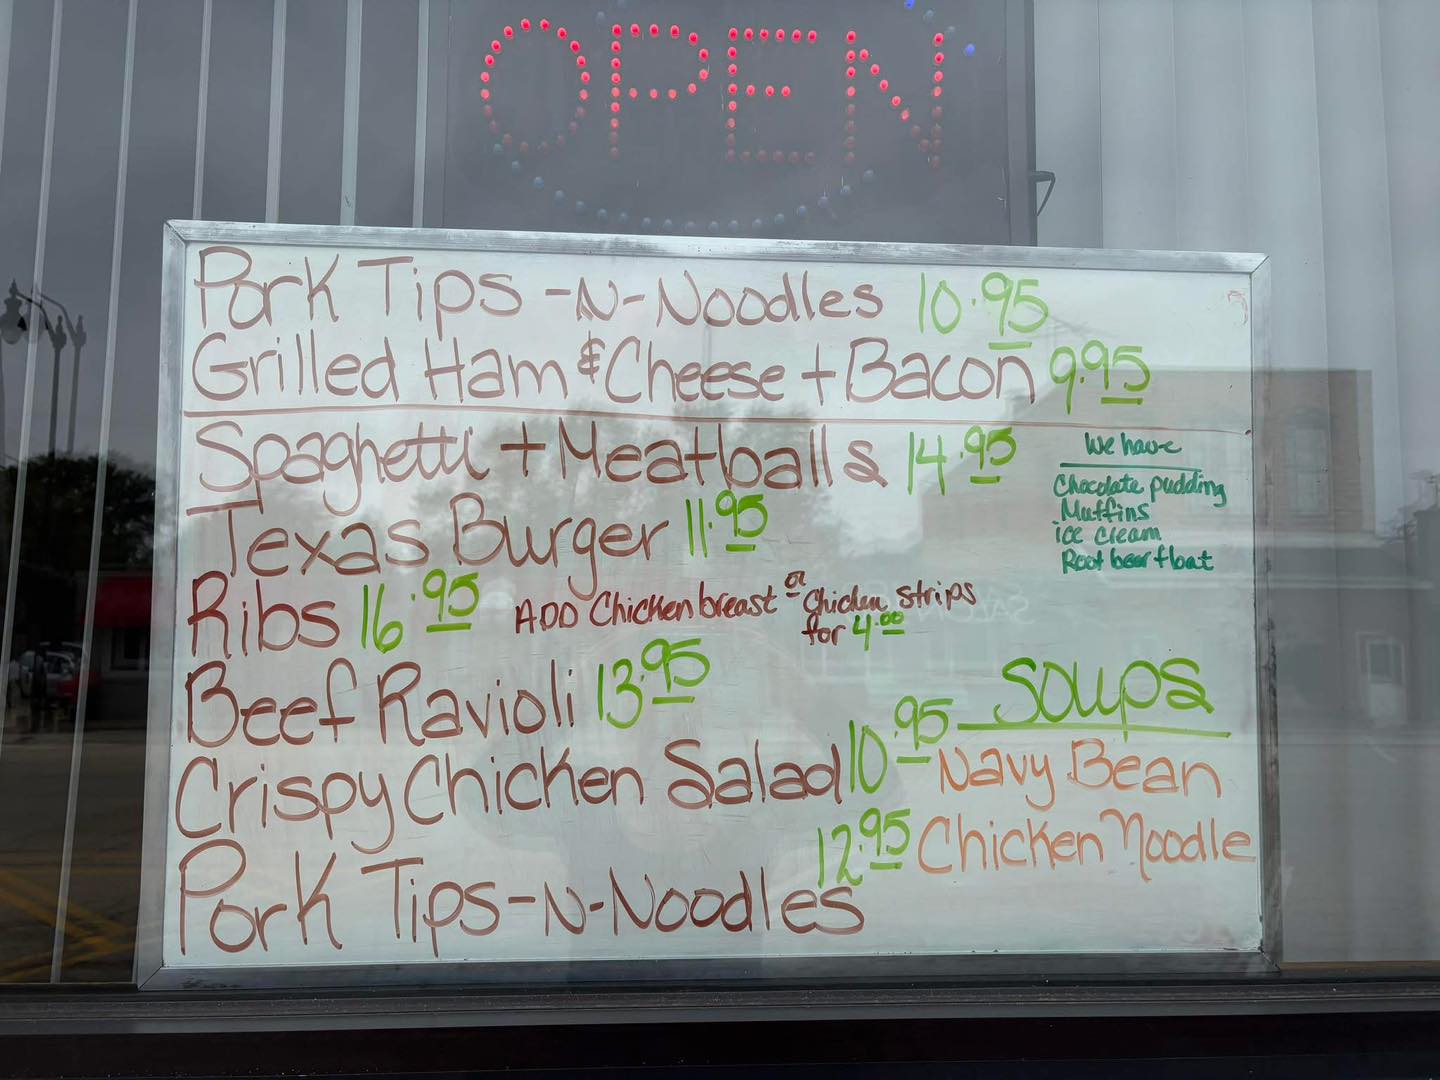 OPEN
Pork Tips -N- Noodles 10.95
Grilled Ham & Cheese + Bacon 9.95
Spaghetti + Meatballs 14.95
Texas Burger 11.95
Ribs 16.95
ADD Chicken breast or Chicken strips
for 4.00
Beef Ravioli 13.95
Crispy Chicken Salad 10.95
Pork Tips -N- Noodles 12.95
We have
Chocolate pudding
Muffins
ice cream
Root beer float
Soups
Navy Bean
Chicken Noodle